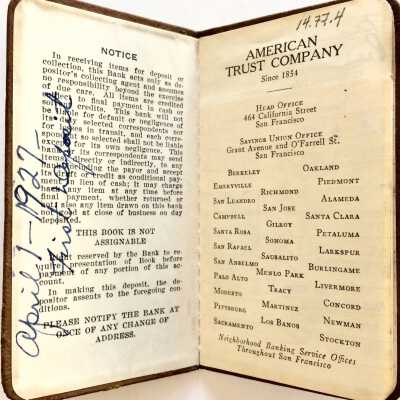 NOTICE
In receiving items for deposit or
collection, this Bank acts only as de-
positor's collecting agent and assumes
no responsibility beyond the exercise
of due care. All items are credited
subject to final payment in cash or
This bank will not
be liable for default or negligence of
its duly selected correspondents nor
for losses in transit, and each corre-
spondent so selected shall not be liable
except for its own negligence. This
bank or its correspondents may send
items, directly or indirectly, to any
bank including the payor and accept
its draft or credit as conditional pay-
ment in lieu of cash; it may charge
back any item at any time before
final payment, whether returned or
not, also any item drawn on this bank
not good at close of business on day
deposited.
THIS BOOK IS NOT
ASSIGNABLE
reserved by the Bank to re-
quire presentation of Book before
payment of any portion of this ac-
count.
In making this deposit, the de-
positor assents to the foregoing con-
ditions.
PLEASE NOTIFY THE BANK AT
ONCE OF ANY CHANGE OF
ADDRESS.
April 1-1927-
First Deposit
1477.4
AMERICAN
TRUST COMPANY
Since 1854
HEAD OFFICE
464 California Street
San Francisco
SAVINGS UNION OFFICE
Grant Avenue and O'Farrell St.
San Francisco
BERKELEY OAKLAND
EMERYVILLE PIEDMONT
RICHMOND
SAN LEANDRO ALAMEDA
SAN JOSE
CAMPBELL SANTA CLARA
GILROY
SANTA ROSA PETALUMA
SONOMA
SAN RAFAEL LARKSPUR
SAUSALITO
SAN ANSELMO BURLINGAME
MENLO PARK
PALO ALTO LIVERMORE
TRACY
MODESTO CONCORD
MARTINEZ
PITTSBURG NEWMAN
LOS BANOS
SACRAMENTO STOCKTON
Neighborhood Banking Service Offices
Throughout San Francisco